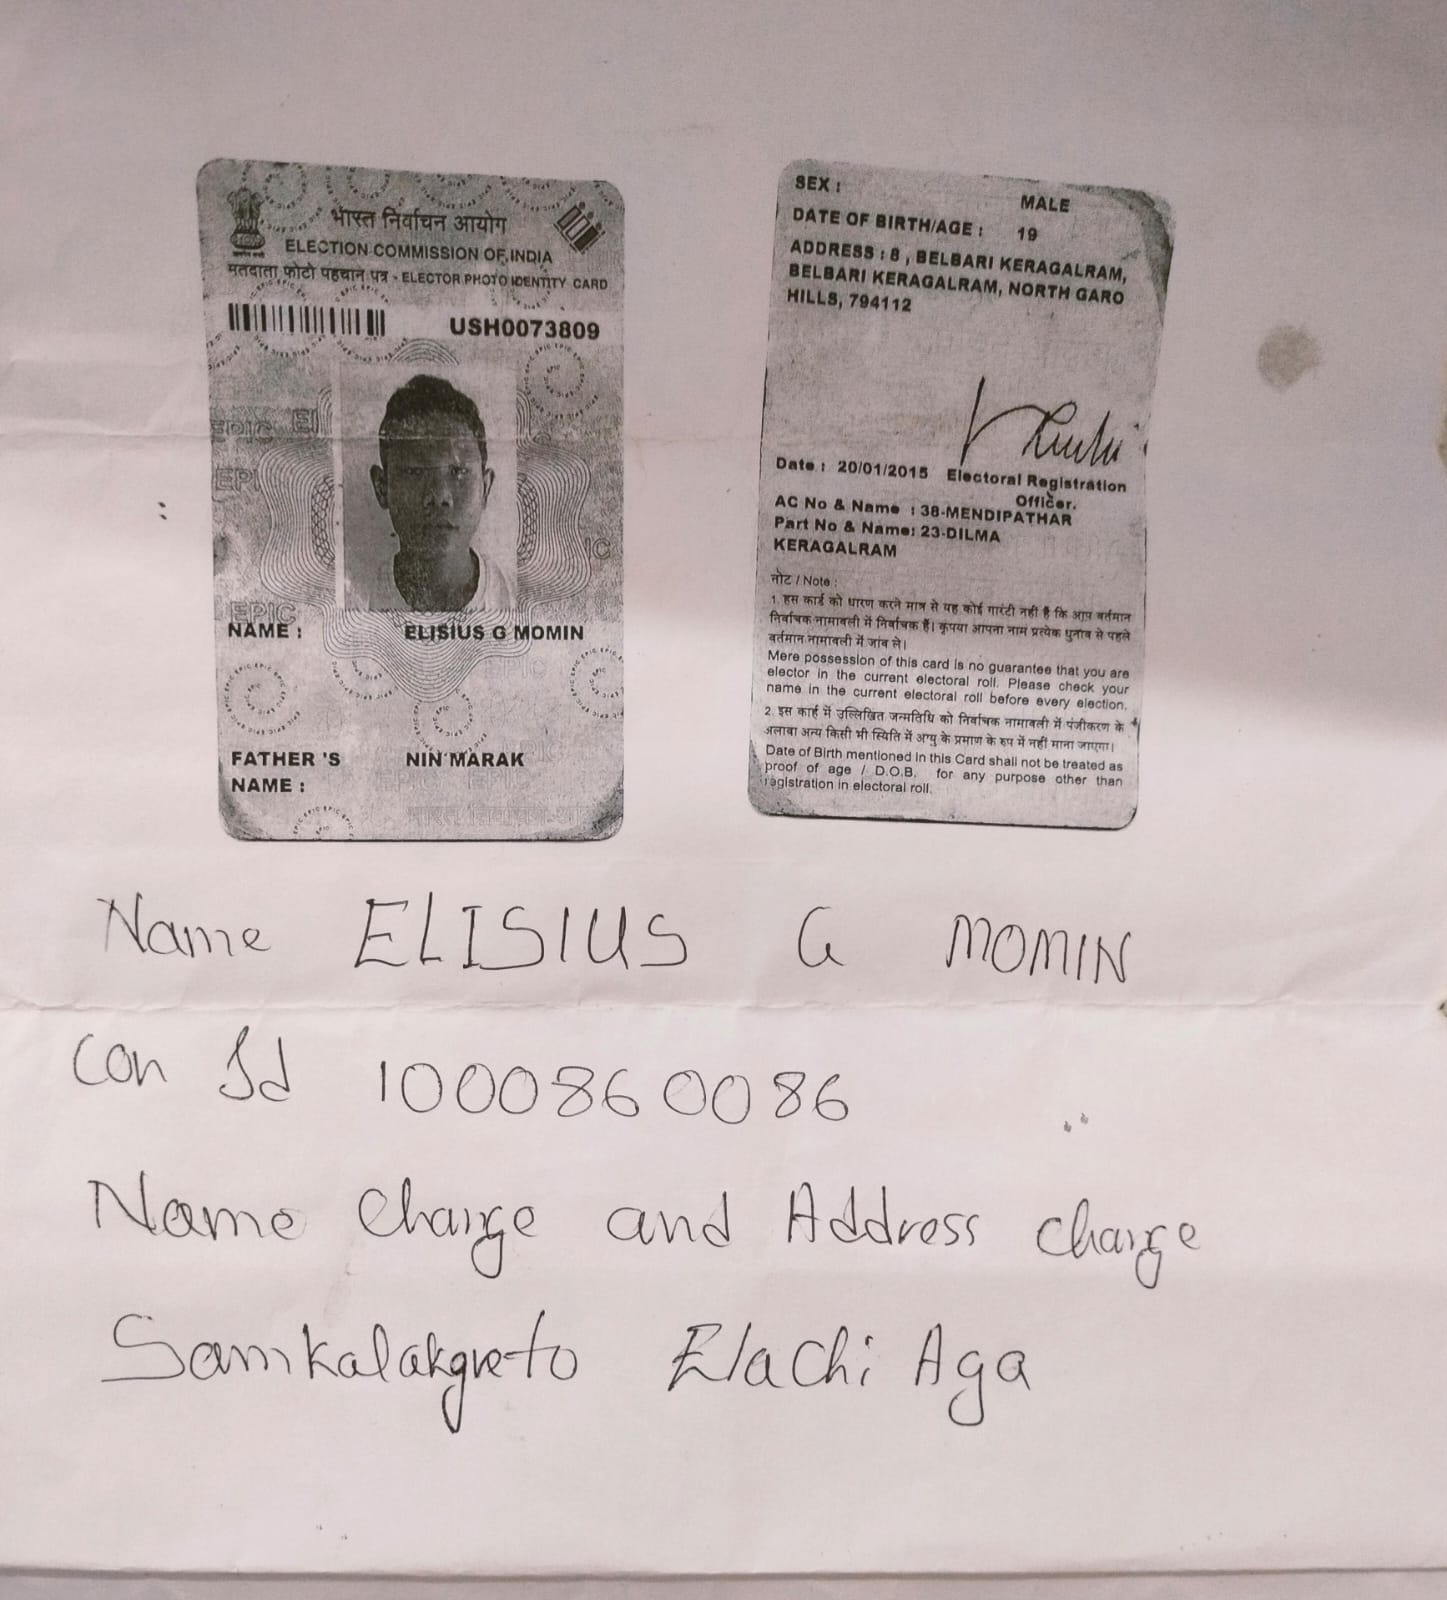 भारत निर्वाचन आयोग
ELECTION COMMISSION OF INDIA
मतदाता फोटो पहचान पत्र - ELECTOR PHOTO IDENTITY CARD
USH0073809
EPIC
NAME : ELISIUS G MOMIN
FATHER 'S NIN MARAK
NAME :
SEX : MALE
DATE OF BIRTH/AGE : 19
ADDRESS : 8 , BELBARI KERAGALRAM,
BELBARI KERAGALRAM, NORTH GARO
HILLS, 794112
Date : 20/01/2015 Electoral Registration
Officer.
AC No & Name : 38-MENDIPATHAR
Part No & Name: 23-DILMA
KERAGALRAM
नोट / Note :
1. इस कार्ड को धारण करने मात्र से यह कोई गारंटी नही है कि आप वर्तमान
निर्वाचक नामावली में निर्वाचक हैं। कृपया आपना नाम प्रत्येक चुनाव से पहले
वर्तमान नामावली में जांच ले।
Mere possession of this card is no guarantee that you are
elector in the current electoral roll. Please check your
name in the current electoral roll before every election.
2. इस कार्ड में उल्लिखित जन्मतिथि को निर्वाचक नामावली में पंजीकरण के
अलावा अन्य किसी भी स्थिति में आयु के प्रमाण के रुप में नहीं माना जाएगा।
Date of Birth mentioned in this Card shall not be treated as
proof of age / D.O.B. for any purpose other than
registration in electoral roll.
Name ELISIUS G MOMIN
Con Id 1000860086
Name change and Address change
Elachi Aga